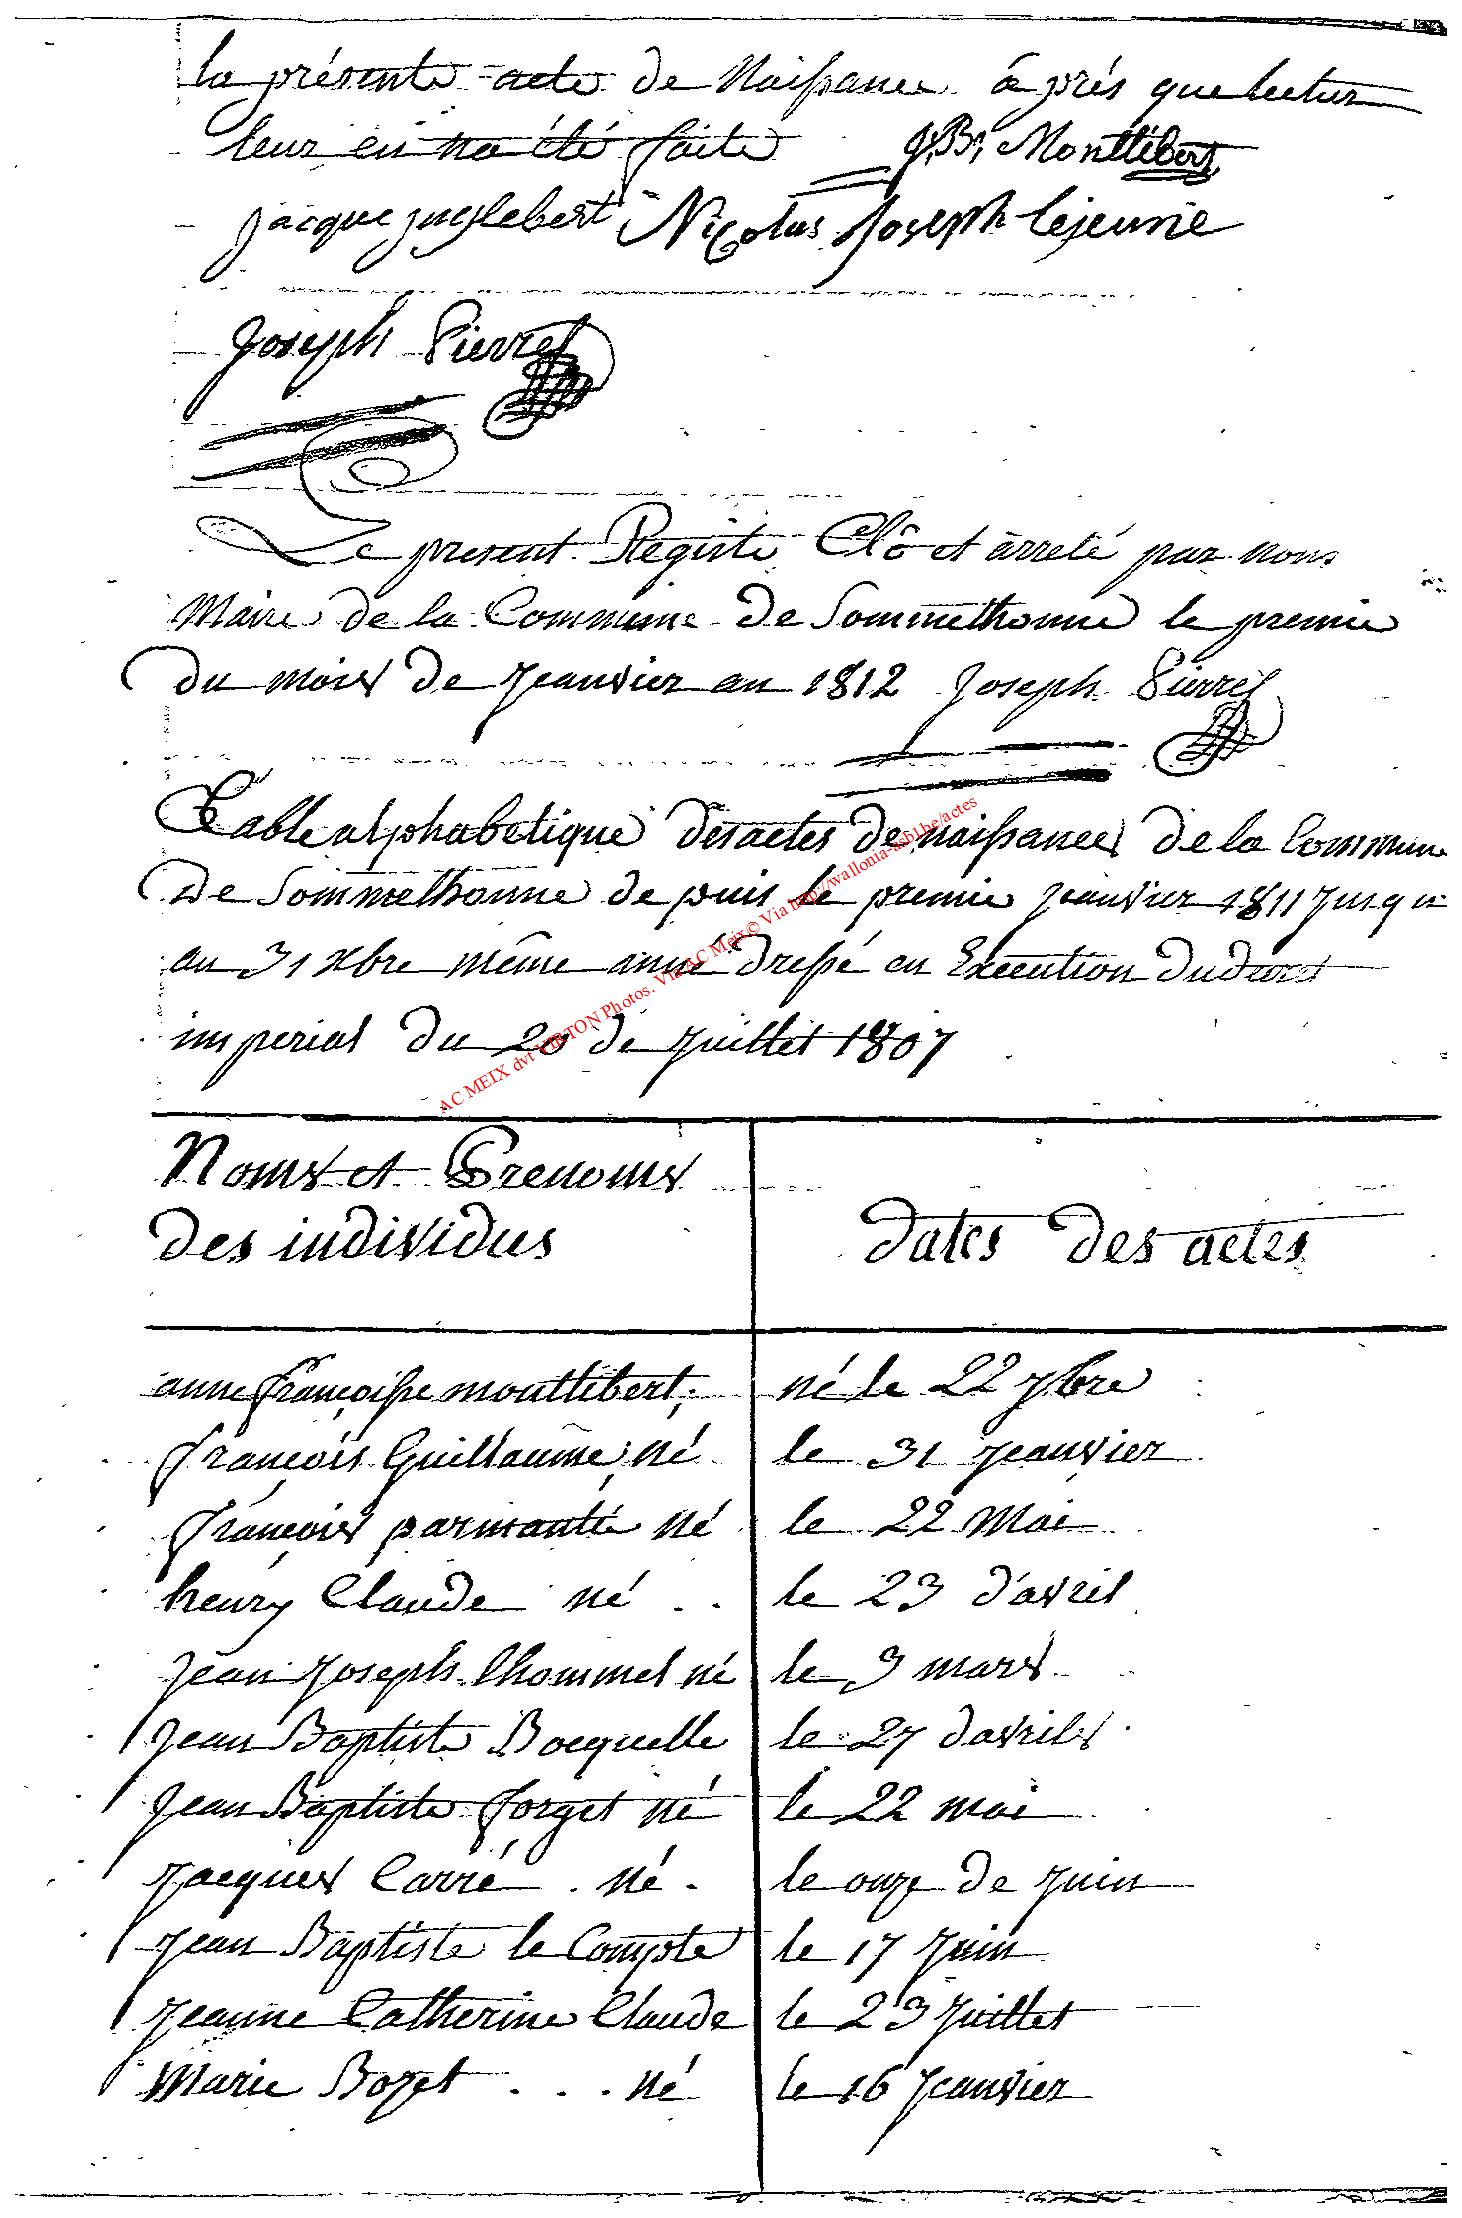 la présente acte de Naissance áprés que lectur
leur en na été faite J,B, Monttibert
jacque jnglebert Nicolas Joseph lejeune
Joseph Pierret
Le present Registe Clô et arreté par nous
Maire de la Commune de Sommethonne le premie
du mois de Jeanvier an 1812 Joseph Pierret
Table alphabetique des actes de naissances de la Commune
de Sommethonne de puis le premie Jeanvier 1811 Jusqu
au 31 xbre même anné dressé en Execution du decret
imperial du 20 de Juillet 1807
AC MEIX dvt VIRTON Photos. Via AC Meix © Via http://wallonia-asbl.be/actes
Noms et Prenoms
des individus
dates des actes
anne françoisse monttibert, né le 22 7bre
françois Guillaume né le 31 Jeanvier
françois parmantié né le 22 Mai
henry Claude né . . le 23 d'avril
Jean Joseph lhommel né le 3 mars
Jean Baptiste Bocquelle le 27 davrils
Jean Baptiste forget né le 22 mai
Jacques Carré . né . le onze de Juin
Jean Baptiste le Compte le 17 Juin
Jeanne Catherine Claude le 23 Juillet
Marie Bozet . . . né le 16 Jeanvier